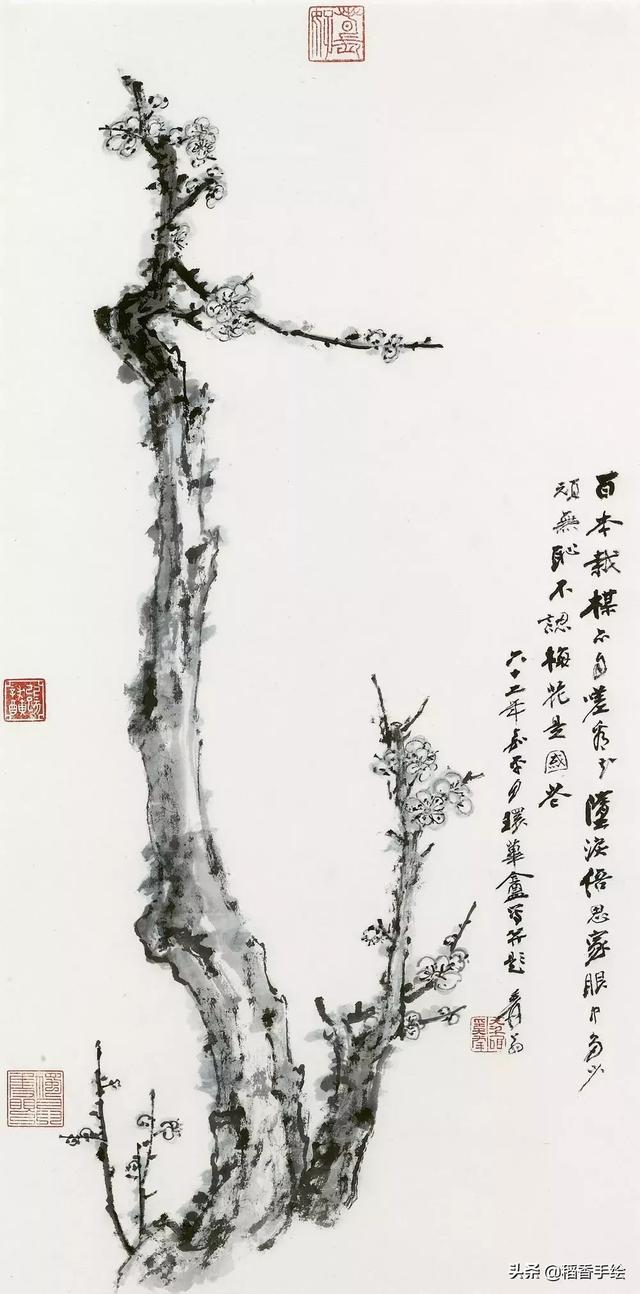 百本栽楳亦自嗟看花墮淚倍思家眼中多少
頑無恥不認梅花是國花
六十二年嘉平月環蓽盦寫并題 爰翁
头条 @稻香手绘